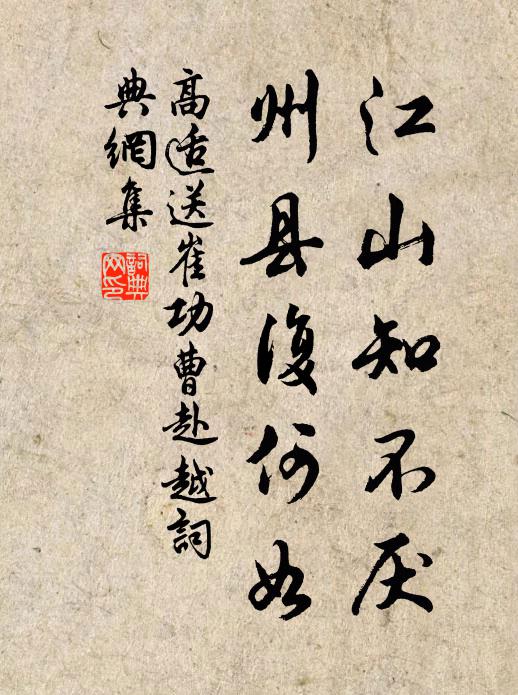 江山知不厌
州县復何如
高适送崔功曹赴越詞
典網集
詞典网印